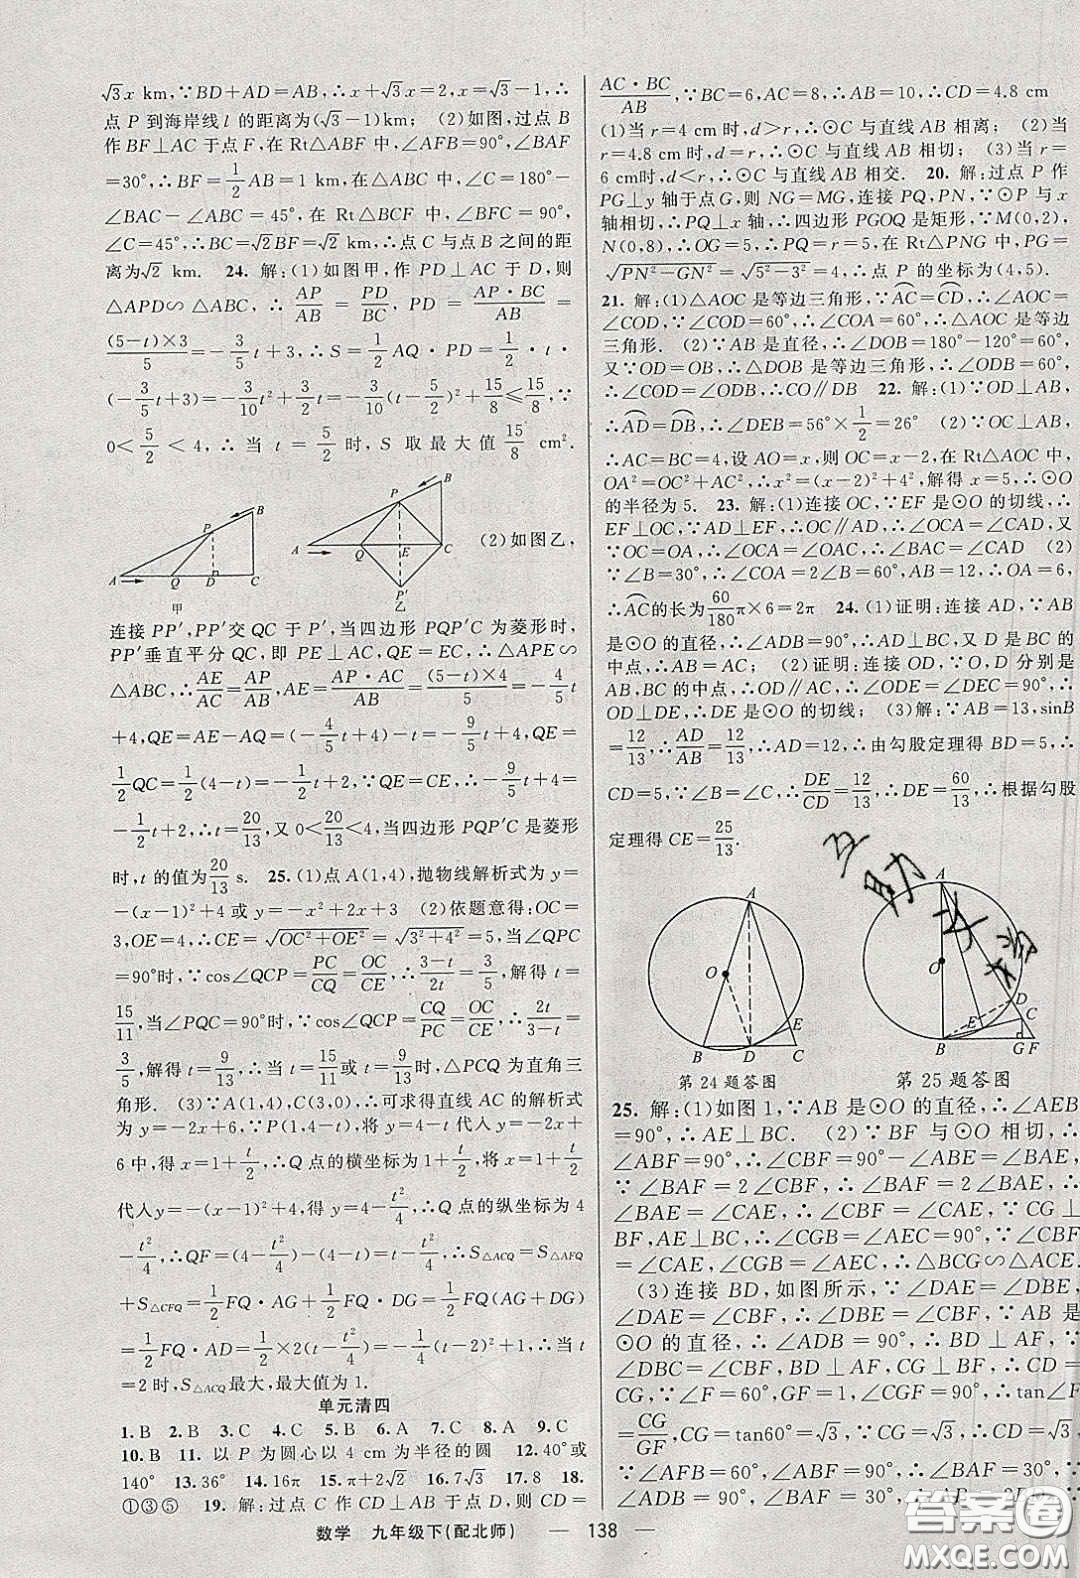 √3x km,∵BD+AD=AB,∴x+√3x=2,x=√3-1,∴
点 P 到海岸线 l 的距离为(√3-1)km; (2)如图,过点 B
作 BF⊥AC 于点 F,在 Rt△ABF 中,∠AFB=90°,∠BAF
=30°,∴BF=1/2AB=1 km,在△ABC 中,∠C=180°-
∠BAC-∠ABC=45°,在 Rt△BCF 中,∠BFC=90°,
∠C=45°,∴BC=√2BF=√2,∴点 C 与点 B 之间的距
离为√2 km. 24. 解:(1)如图甲,作 PD⊥AC 于 D,则
△APD∽△ABC,∴AP/AB=PD/BC,PD=AP·BC/AB=
(5-t)×3/5=-3/5t+3,∴S=1/2AQ·PD=1/2·t·
(-3/5t+3)=-3/10t²+3/2t=-3/10(t-5/2)²+15/8≤15/8,∵
0<5/2<4,∴当 t=5/2时,S 取最大值15/8 cm².
A Q D C P B 甲
A Q E C P B P′ 乙
(2)如图乙,
连接 PP′,PP′交 QC 于 P′,当四边形 PQP′C 为菱形时,
PP′垂直平分 QC,即 PE⊥AC,QE=EC,∴△APE∽
△ABC,∴AE/AC=AP/AB,AE=AP·AC/AB=(5-t)×4/5=-4/5t
+4,QE=AE-AQ=(-4/5t+4)-t=-9/5t+4,QE=
1/2QC=1/2(4-t)=-1/2t+2,∵QE=CE,∴-9/5t+4
=-1/2t+2,∴t=20/13,又 0<20/13<4,当四边形 PQP′C 是菱形
时,t 的值为20/13 s. 25.(1)点 A(1,4),抛物线解析式为 y=
-(x-1)²+4或 y=-x²+2x+3 (2)依题意得:OC=
3,OE=4,∴CE=√OC²+OE²=√3²+4²=5,当∠QPC
=90°时,∵cos∠QCP=PC/CQ=OC/CE,∴3-t/2t=3/5,解得 t=
15/11,当∠PQC=90°时,∵cos∠QCP=CQ/PC=OC/CE,∴2t/3-t=
3/5,解得 t=9/13,∴当 t=15/11或 t=9/13时,△PCQ 为直角三
角形. (3)∵A(1,4),C(3,0),∴可求得直线 AC 的解析式
为 y=-2x+6,∵P(1,4-t),将 y=4-t 代入 y=-2x+
6中,得 x=1+t/2,∴Q 点的横坐标为1+t/2,将 x=1+t/2
代入y=-(x-1)²+4,得 y=4-t²/4,∴Q 点的纵坐标为 4
-t²/4,∴QF=(4-t²/4)-(4-t)=t-t²/4,∴S△ACQ=S△AFQ
+S△CFQ=1/2FQ·AG+1/2FQ·DG=1/2FQ(AG+DG)
=1/2FQ·AD=1/2×2(t-t²/4)=-1/4(t-2)²+1,∴当 t
=2 时,S△ACQ最大,最大值为 1.
单元清四
1. B 2. B 3. C 4. C 5. B 6. A 7. C 8. A 9. C
10. B 11. 以 P 为圆心以 4 cm 为半径的圆 12. 40°或
140° 13. 36° 14. 16π 15. π+2√2 16. 7√3 17. 8 18.
①③⑤ 19. 解:过点 C 作 CD⊥AB 于点 D,则 CD=
AC·BC/AB,∵BC=6,AC=8,∴AB=10,∴CD=4.8 cm
(1)当 r=4 cm 时,d>r,∴⊙C 与直线 AB 相离; (2)当
r=4.8 cm 时,d=r,∴⊙C 与直线 AB 相切; (3)当 r=
6 cm时,d<r,∴⊙C 与直线 AB 相交. 20. 解:过点 P 作
PG⊥y 轴于点 G,则 NG=MG,连接 PQ,PN,∵⊙P 与 x
轴相切,∴PQ⊥x 轴,∴四边形 PGOQ 是矩形,∵M(0,2),
N(0,8),∴OG=5,∴PQ=PN=5,在 Rt△PNG 中,PG=
√PN²-GN²=√5²-3²=4,∴点 P 的坐标为(4,5).
21. 解:(1)△AOC 是等边三角形,∵AC=CD,∴∠AOC=
∠COD,∵∠COD=60°,∴∠COA=60°,∴△AOC是等边
三角形. (2)∵AB 是直径,∴∠DOB=180°-120°=60°,
又∵OD=OB,∴△DOB 是等边三角形,∴∠ODB=60°,
∴∠COD=∠ODB,∴CO∥DB 22. 解:(1)∵OD⊥AB,
∴AD=DB,∴∠DEB=56°×1/2=26° (2)∵OD⊥AB,
∴AC=BC=4,设 AO=x,则 OC=x-2,在 Rt△AOC 中,
OA²=OC²+AC²,∴x²=(x-2)²+4²,解得 x=5,∴⊙O
的半径为 5. 23. 解:(1)连接 OC,∵EF 是⊙O 的切线,∴
EF⊥OC,∵AD⊥EF,∴OC∥AD,∴∠OCA=∠CAD,又
∵OC=OA,∴∠OCA=∠OAC,∴∠BAC=∠CAD (2)
∵∠B=30°,∴∠AOC=60°,∵AB=12,∴OA=6,
∴AC的长为60/180π×6=2π 24.(1)证明:连接 AD,∵AB
是⊙O 的直径,∴∠ADB=90°,∴AD⊥BC,又 D 是 BC 的
中点,∴AB=AC; (2)证明:连接 OD,∵O,D 分别是
AB,BC 的中点,∴OD∥AC,∴∠ODE=∠DEC=90°,∴
OD⊥DE,∴DE 是⊙O 的切线; (3)解:∵AB=13,sinB
=12/13,∴AD/AB=12/13,∴AD=12,∴由勾股定理得 BD=5,∴
CD=5,∵∠B=∠C,∴DE/CD=12/13,∴DE=60/13,∴根据勾股
定理得 CE=25/13.
A O E B D C
第 24 题答图
A O D C E B G F
第 25 题答图
25. 解:(1)如图 1,∵AB 是⊙O 的直径,∴∠AEB
=90°,∴AE⊥BC. (2)∵BF 与⊙O 相切,∴
∠ABF=90°,∴∠CBF=90°-∠ABE=∠BAE,
∵∠BAF=2∠CBF,∴∠BAF=2∠BAE,∴
∠BAE=∠CAE,∴∠CBF=∠CAE,∵CG⊥
BF,AE⊥BC,∴∠CGB=∠AEC=90°,∵∠CBF
=∠CAE,∠CGB=∠AEC,∴△BCG∽△ACE.
(3)连接 BD,如图所示,∵∠DAE=∠DBE,
∠DAE=∠CBF,∴∠DBE=∠CBF,∵AB 是
⊙O 的直径,∴∠ADB=90°,∴BD⊥AF,∵
∠DBC=∠CBF,BD⊥AF,CG⊥BF,∴CD=
CG,∵∠F=60°,GF=1,∠CGF=90°,∴tan∠F
=CG/GF,CG=tan60°=√3,∵CG=√3,∴CD=√3,
∵∠AFB=60°,∠ABF=90°,∴∠BAF=30°,
数学 九年级下(配北师) — 138 —
答案圈
MXQE.COM